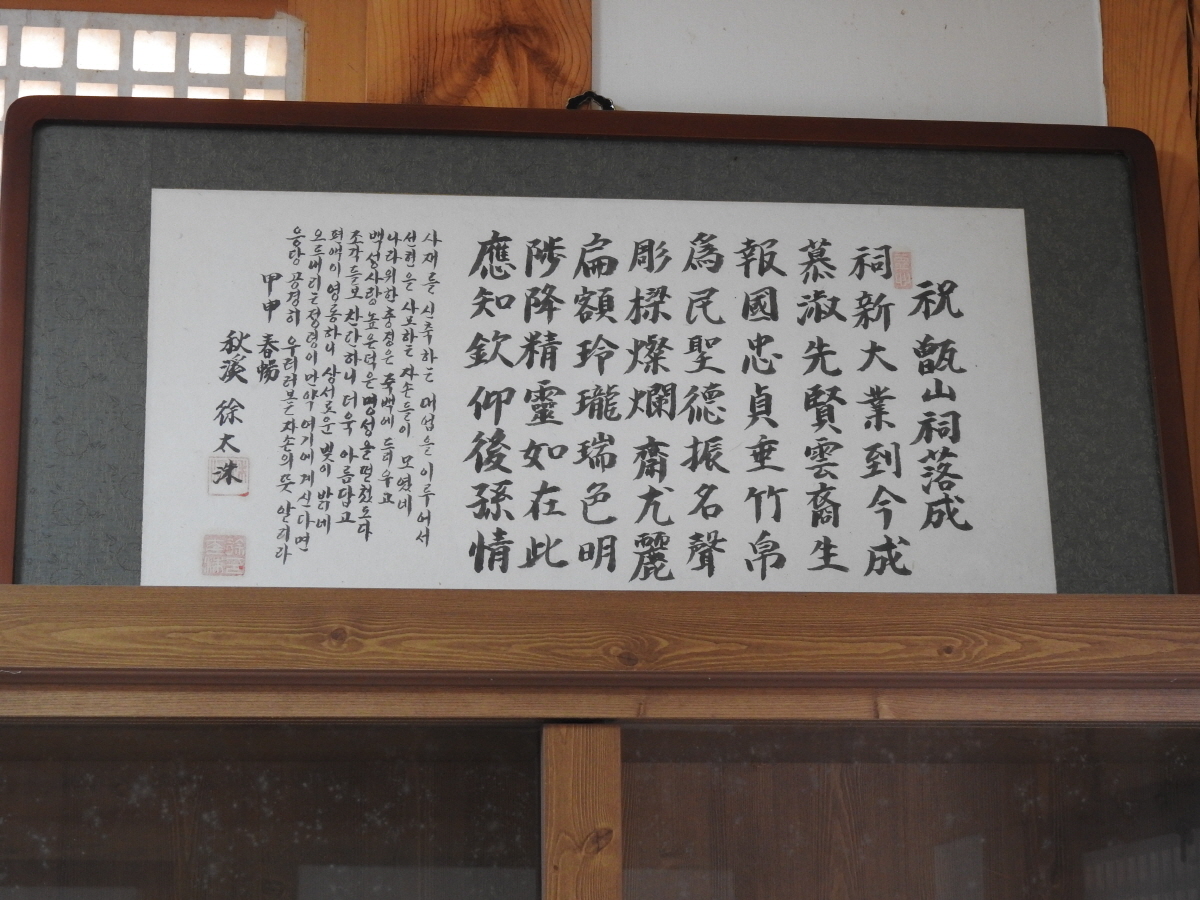 祝 甑山祠落成
祠新大業到今成
慕淑先賢雲裔生
報國忠貞垂竹帛
爲民聖德振名聲
彫樑燦爛齋尤麗
扁額玲瓏瑞色明
陟降精靈如在此
應知欽仰後孫情
사재를 신축하는 대업을 이루어서
선현을 사모하는 자손들이 모였네
나라위한 충정은 죽백에 드리우고
백성사랑 높은덕은 명성을 떨쳤도다
조각들보 찬란하니 더욱 아름답고
편액이 영롱하니 상서로운 빛이 밝네
오르내리는 정령이 만약 여기에 계신다면
응당 공경히 우러러볼 자손의 뜻 알리라
甲申 春暢
秋溪 徐太洙